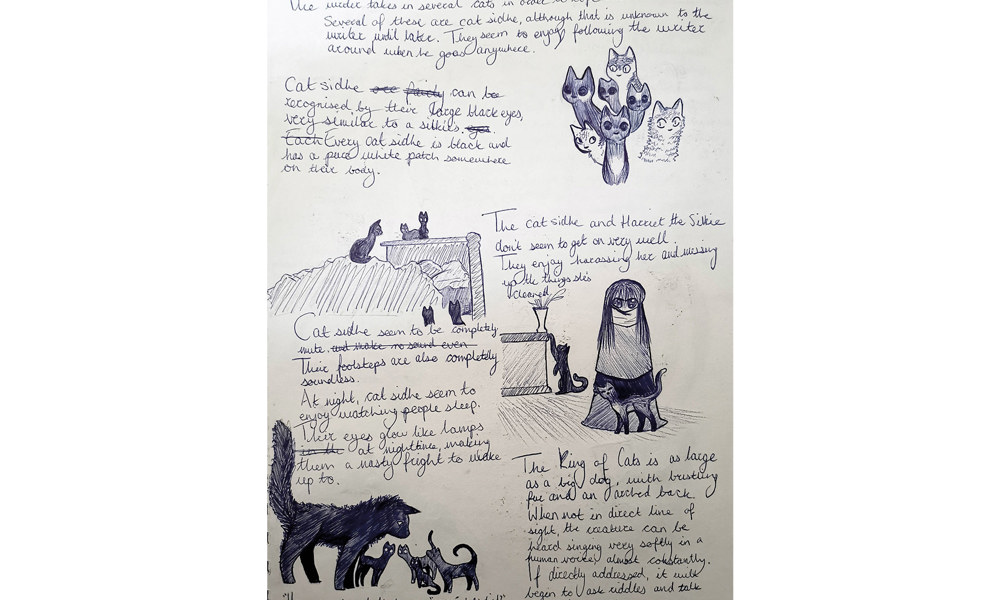 The writer takes in several cats in order to
Several of these are cat sidhe, although that is unknown to the
writer until later. They seem to enjoy following the writer
around when he goes anywhere.
Cat sidhe are fairly can be
recognised by their large black eyes,
very similar to a silkies.
Each Every cat sidhe is black and
has a pure white patch somewhere
on their body.
The cat sidhe and Harriet the Silkie
don't seem to get on very well.
They enjoy harassing her and messing
up the things she's
cleaned.
Cat sidhe seem to be completely
mute. and make no sound even
Their footsteps are also completely
soundless.
At night, cat sidhe seem to
enjoy watching people sleep.
Their eyes glow like lamps
in the at nighttime, making
them a nasty fright to wake
up to.
The King of Cats is as large
as a big dog, with bristling
fur and an arched back.
When not in direct line of
sight, the creature can be
heard singing very softly in a
human voice, almost constantly.
If directly addressed, it will
begin to ask riddles and talk